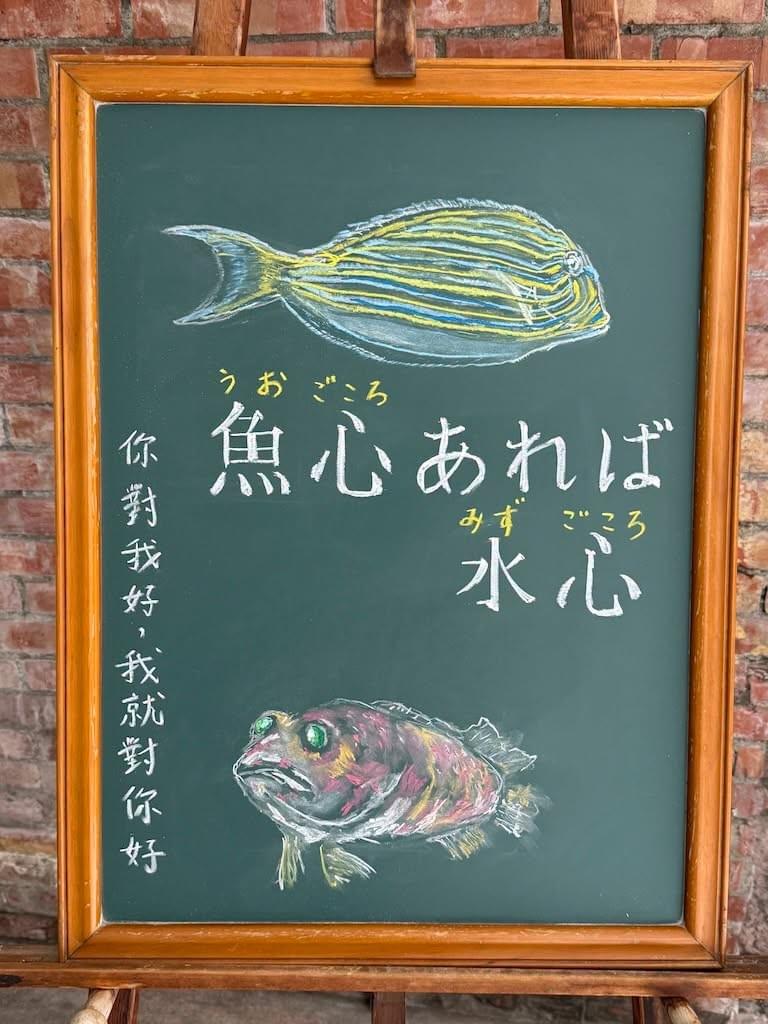 うお ごころ
魚心あれば
みず ごころ
水心
你對我好，我就對你好